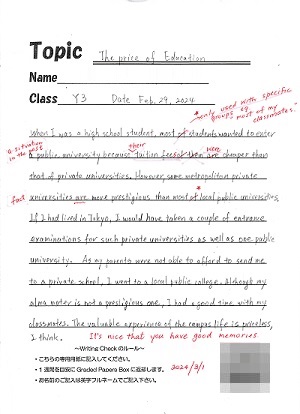 Topic The price of Education
Name
Class Y3 Date Feb. 29, 2024
* only used with specific
groups eg.
most of my
classmates.
When I was a high school student, most of students wanted to enter
a situation
in the past
their were
a public university because tuition fees of them are cheaper than
that of private universities. However, some metropolitan private
fact universities are more prestigious than most of local public universities.
If I had lived in Tokyo, I would have taken a couple of entrance
examinations for such private universities as well as one public
university. As my parents were not able to afford to send me
to a private school, I went to a local public college. Although my
alma mater is not a prestigious one, I had a good time with my
classmates. The valuable experience of the campus life is priceless,
I think. It's nice that you have good memories
~Writing Checkのルール~
・こちらの専用用紙に記入してください。
・1週間を目安に Graded Papers Box に返却します。
・お名前のご記入は英字フルネームでご記入下さい。
2024/3/1